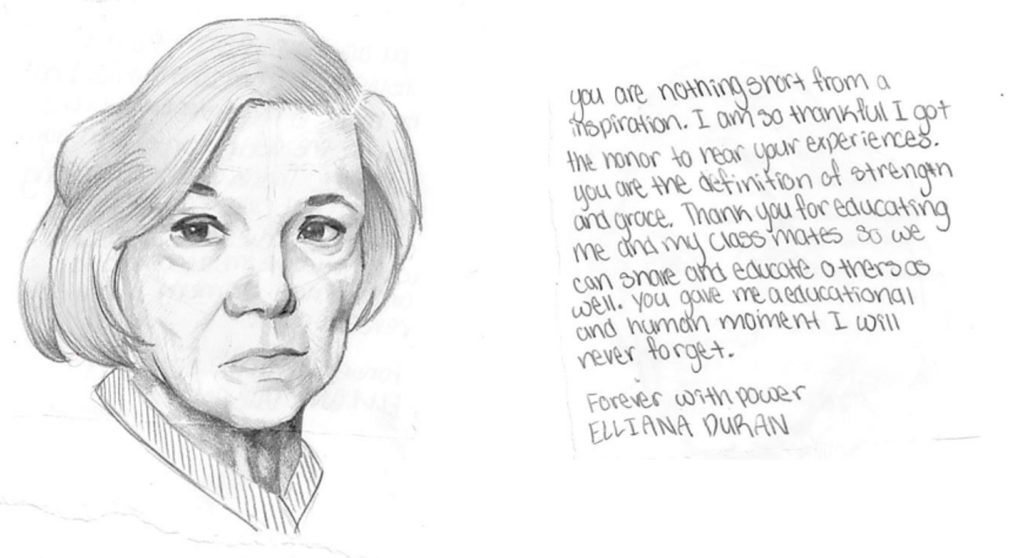 you are nothing short from a
inspiration. I am so thankful I got
the honor to hear your experiences.
you are the definition of strength
and grace. Thank you for educating
me and my class mates so we
can share and educate others as
well. you gave me a educational
and human moment I will
never forget.
Forever with power
ELLIANA DURAN